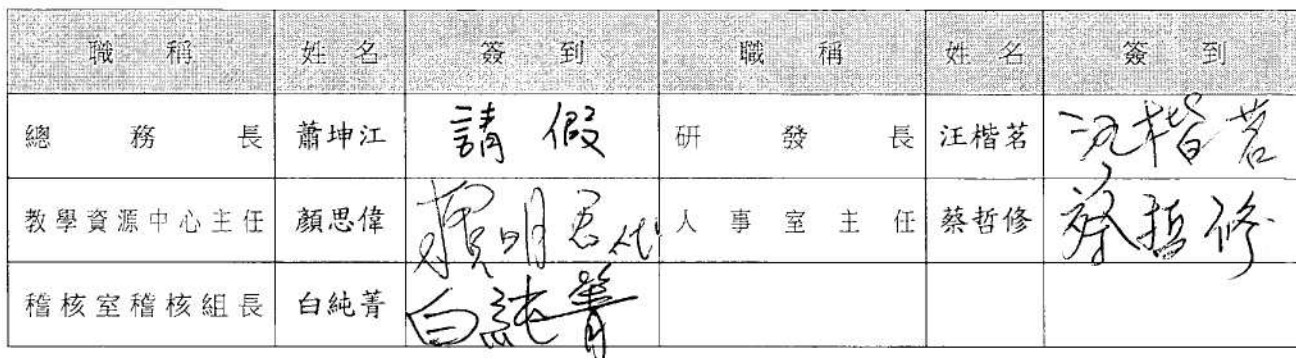 職稱 姓名 簽到 職稱 姓名 簽到
總務長 蕭坤江 請假 研發長 汪楷茗 汪楷茗
教學資源中心主任 顏思偉 明君代 人事室主任 蔡哲修 蔡哲修
稽核室稽核組長 白純菁 白純菁